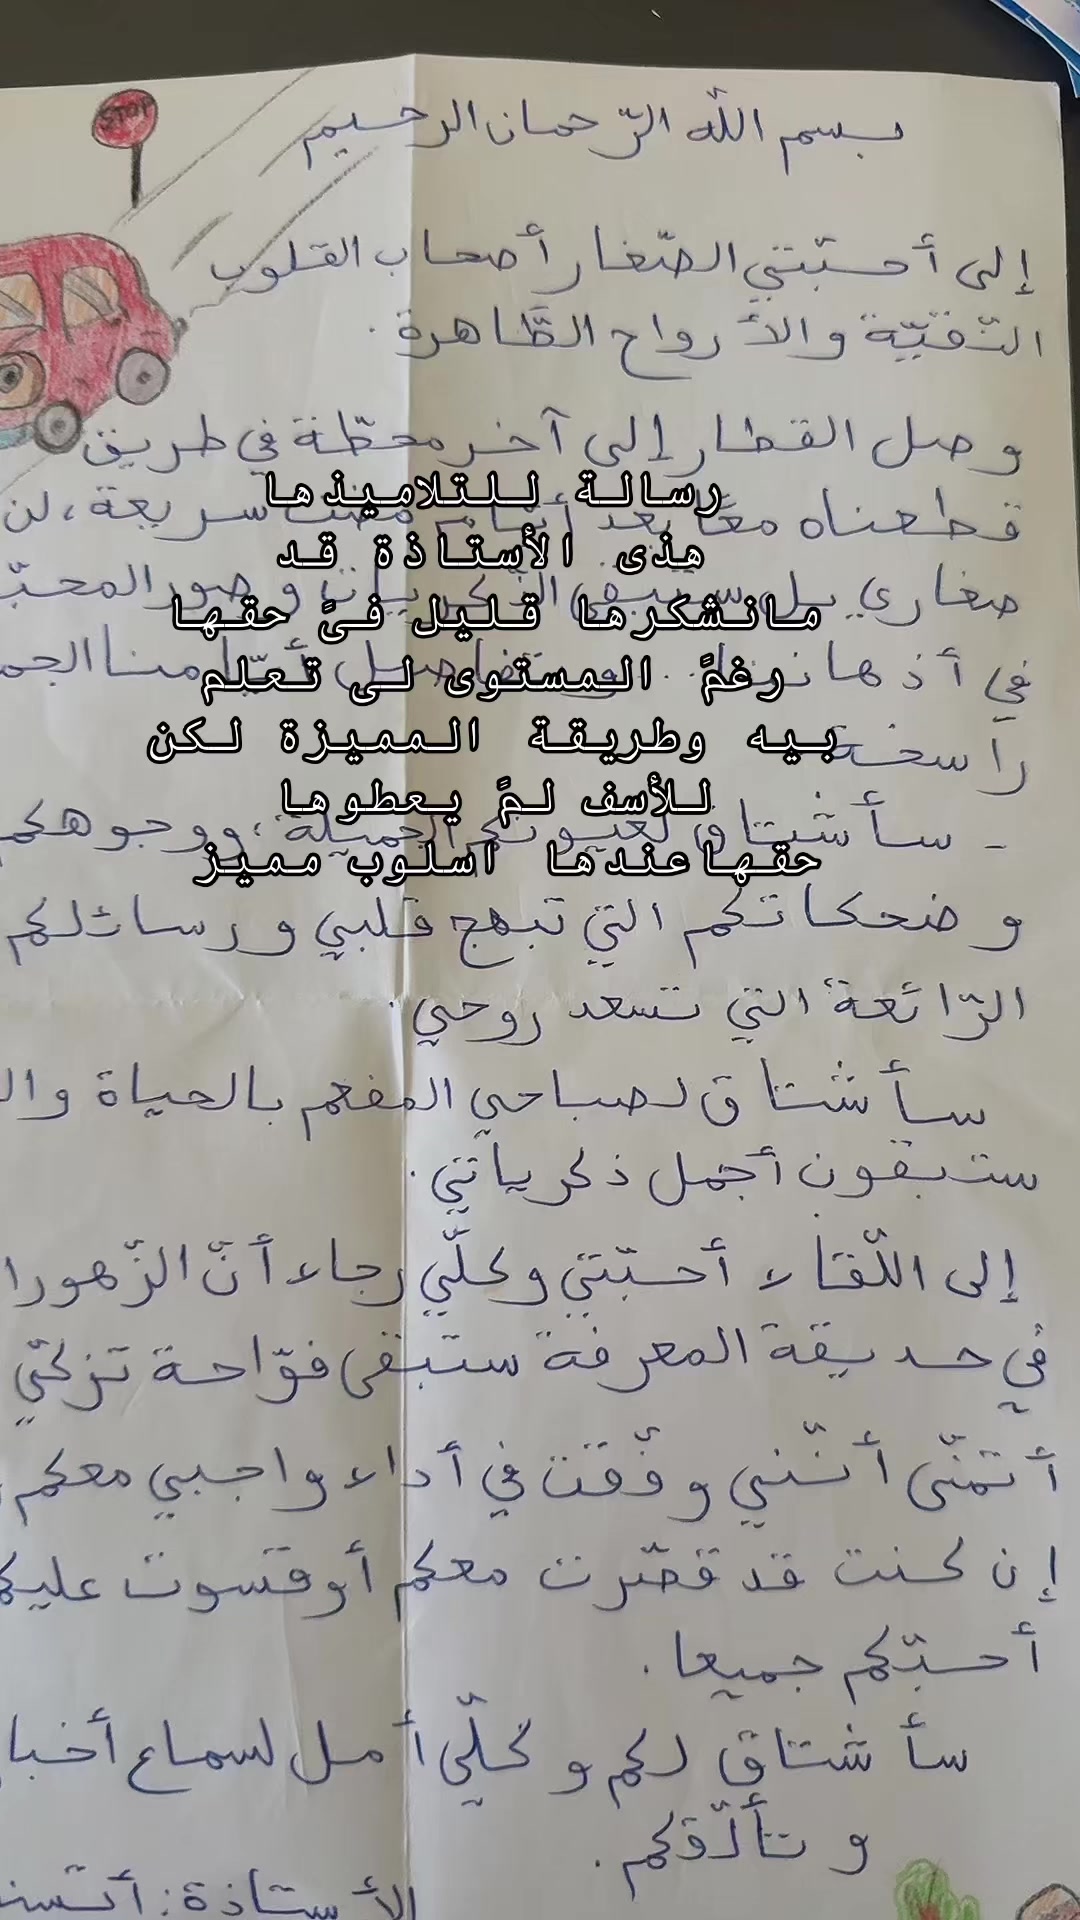 STOP
بسم الله الرّحمان الرحيم
إلى أحبّتي الصّغار أصحاب القلوب
النّقيّة والأرواح الطَّاهرة.
وصل القطار إلى آخر محطّة في طريق
قطعناه معًا بعد أيّام مضت سريعة، لن
صغاري بل ستبقى الذّكريات وصور المحبّ
في أذهاننا... وتفاصيل أيّامنا الجم
راسخة
رسالة للتلاميذها
هذى الأستاذة قد
مانشكرها قليل فىً حقها
رغمً المستوى لى تعلم
بيه وطريقة المميزة لكن
للأسف لمً يعطوها
حقهاعندها اسلوب مميز
- سأشتاق لعيونكم الجميلة، ووجوهكم
وضحكاتكم التي تبهج قلبي ورسائلكم
الرّائعة التي تسعد روحي.
سأشتاق لصباحي المفعم بالحياة وال
ستبقون أجمل ذكرياتي.
إلى اللّقاء أحبّتي وكلّي رجاء أنّ الزّهور ا
في حديقة المعرفة ستبقى فوّاحة تزكّي
أتمنّى أنّني وفّقت في أداء واجبي معكم
إن كنت قد قصّرت معكم أو قسوت عليك
أحبّكم جميعا.
سأشتاق لكم وكلّي أمل لسماع أخبا
وتألّقكم.
الأستاذة: